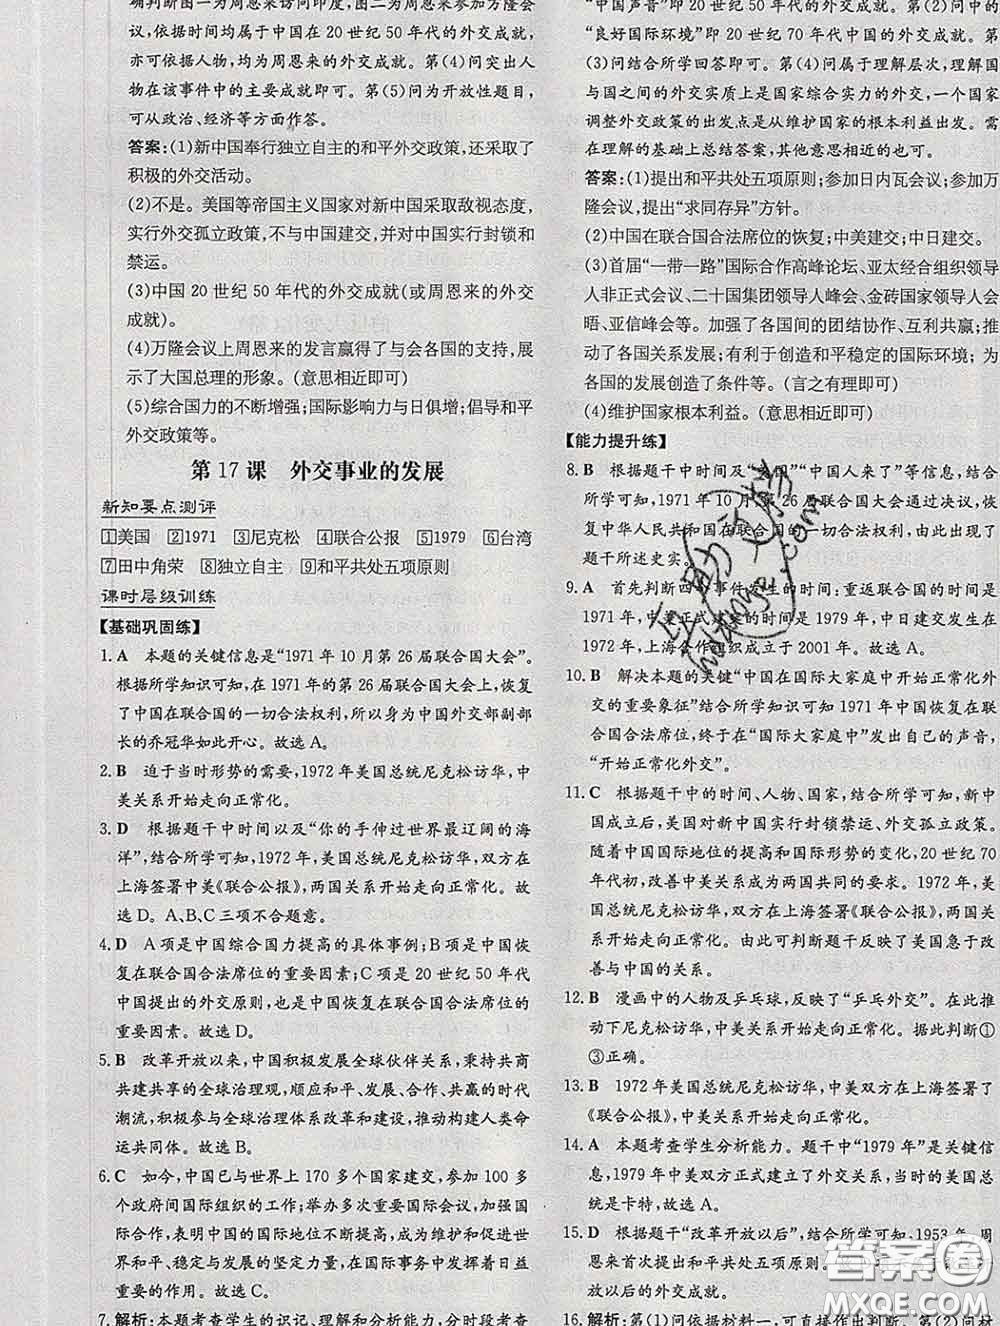 确判断图一为周恩来访问印度,图二为周恩来参加万隆会
议,依据时间均属于中国在 20 世纪 50 年代的外交成就,
亦可依据人物,均为周恩来的外交成就。第(4)问突出人
物在该事件中的主要成就即可。第(5)问为开放性题目,
可从政治、经济等方面作答。
答案:(1)新中国奉行独立自主的和平外交政策,还采取了
积极的外交活动。
(2)不是。美国等帝国主义国家对新中国采取敌视态度,
实行外交孤立政策,不与中国建交,并对中国实行封锁和
禁运。
(3)中国 20 世纪 50 年代的外交成就(或周恩来的外交
成就)。
(4)万隆会议上周恩来的发言赢得了与会各国的支持,展
示了大国总理的形象。(意思相近即可)
(5)综合国力的不断增强;国际影响力与日俱增;倡导和平
外交政策等。
第 17 课 外交事业的发展
新知要点测评
①美国 ②1971 ③尼克松 ④联合公报 ⑤1979 ⑥台湾
⑦田中角荣 ⑧独立自主 ⑨和平共处五项原则
课时层级训练
【基础巩固练】
1. A 本题的关键信息是“1971 年 10 月第 26 届联合国大会”。
根据所学知识可知,在 1971 年的第 26 届联合国大会上,恢复
了中国在联合国的一切合法权利,所以身为中国外交部副部
长的乔冠华如此开心。故选 A。
2. B 迫于当时形势的需要,1972 年美国总统尼克松访华,中
美关系开始走向正常化。
3. D 根据题干中时间以及“你的手伸过世界最辽阔的海
洋”,结合所学可知,1972 年,美国总统尼克松访华,双方在
上海签署中美《联合公报》,两国关系开始走向正常化。故
选 D。A、B、C 三项不合题意。
4. D A 项是中国综合国力提高的具体事例;B 项是中国恢
复在联合国合法席位的重要因素;C 项是 20 世纪 50 年代
中国提出的外交原则,是中国恢复在联合国合法席位的
重要因素。故选 D。
5. B 改革开放以来,中国积极发展全球伙伴关系,秉持共商
共建共享的全球治理观,顺应和平、发展、合作、共赢的时代
潮流,积极参与全球治理体系改革和建设,推动构建人类命
运共同体。故选 B。
6. C 如今,中国已与世界上 170 多个国家建交,参加 100
多个政府间国际组织的工作;举办多次重要国际会议,加强
国际合作,表明中国的国际地位不断提高,在促进世界和
平、稳定与发展的崇高事业中,在国际事务中发挥着日益
重要的作用。故选 C。
7. 解析:本题考查学生的识记、理解和分析能力。分时段考查
“中国声音”即 20 世纪 50 年代的外交成就。第(2)问中的
“良好国际环境”即 20 世纪 70 年代中国的外交成就。第
(3)问结合所学回答即可。第(4)问属于理解层次,国家
与国之间的外交实质上是国家综合实力的外交,一个国家
调整外交政策的出发点是从维护国家的根本利益出发。需
在理解的基础上总结答案,其他意思相近的也可。
答案:(1)提出和平共处五项原则;参加日内瓦会议;参加万
隆会议,提出“求同存异”方针。
(2)中国在联合国合法席位的恢复;中美建交;中日建交。
(3)首届“一带一路”国际合作高峰论坛、亚太经合组织领导
人非正式会议、二十国集团领导人峰会、金砖国家领导人会
晤、亚信峰会等。加强了各国间的团结协作、互利共赢;推
动了各国关系发展;有利于创造和平稳定的国际环境;为
各国的发展创造了条件等。(言之有理即可)
(4)维护国家根本利益。(意思相近即可)
【能力提升练】
8. B 根据题干中时间及“美国”“中国人来了”等信息,结合
所学可知,1971 年 10 月第 26 届联合国大会通过决议,恢
复中华人民共和国在联合国的一切合法权利,由此出现了
题干所述史实。
9. A 首先判断四个事件发生的时间:重返联合国的时间是
1971 年,中美正式建交的时间是 1979 年,中日建交发生在
1972 年,上海合作组织成立于 2001 年。故选 A。
10. B 解决本题的关键“中国在国际大家庭中开始正常化外
交的重要象征”结合所学知识可知 1971 年中国恢复在联
合国合法席位,终于在“国际大家庭中”发出自己的声音,
“开始正常化外交”。
11. C 根据题干中的时间、人物、国家,结合所学可知,新中
国成立后,美国对新中国实行封锁禁运、外交孤立政策。
随着中国国际地位的提高和国际形势的变化,20 世纪 70
年代初,改善中美关系成为两国共同的要求。1972 年,美
国总统尼克松访华,双方在上海签署《联合公报》,两国关
系开始走向正常化。由此可判断题干反映了美国急于改
善与中国的关系。
12. B 漫画中的人物及乒乓球,反映了“乒乓外交”。在此推
动下尼克松访华,中美关系开始走向正常化。据此判断①
③正确。
13. B 1972 年美国总统尼克松访华,中美双方在上海签署了
《联合公报》,中美关系开始走向正常化。
14. A 本题考查学生分析能力。题干中“1979 年”是关键信
息,1979 年中美双方正式建立了外交关系,当时的美国总
统是卡特,故选 A。
15. B 根据题干“改革开放以后”,结合所学可知,1953 年,周
恩来首次提出和平共处五项原则。
放以后的外交成就。
16. 解析:第(1)问依据材料一,可直接作出判断。第(2)问材
互助文档
huzhuge.com
答案圈
MXQE.COM